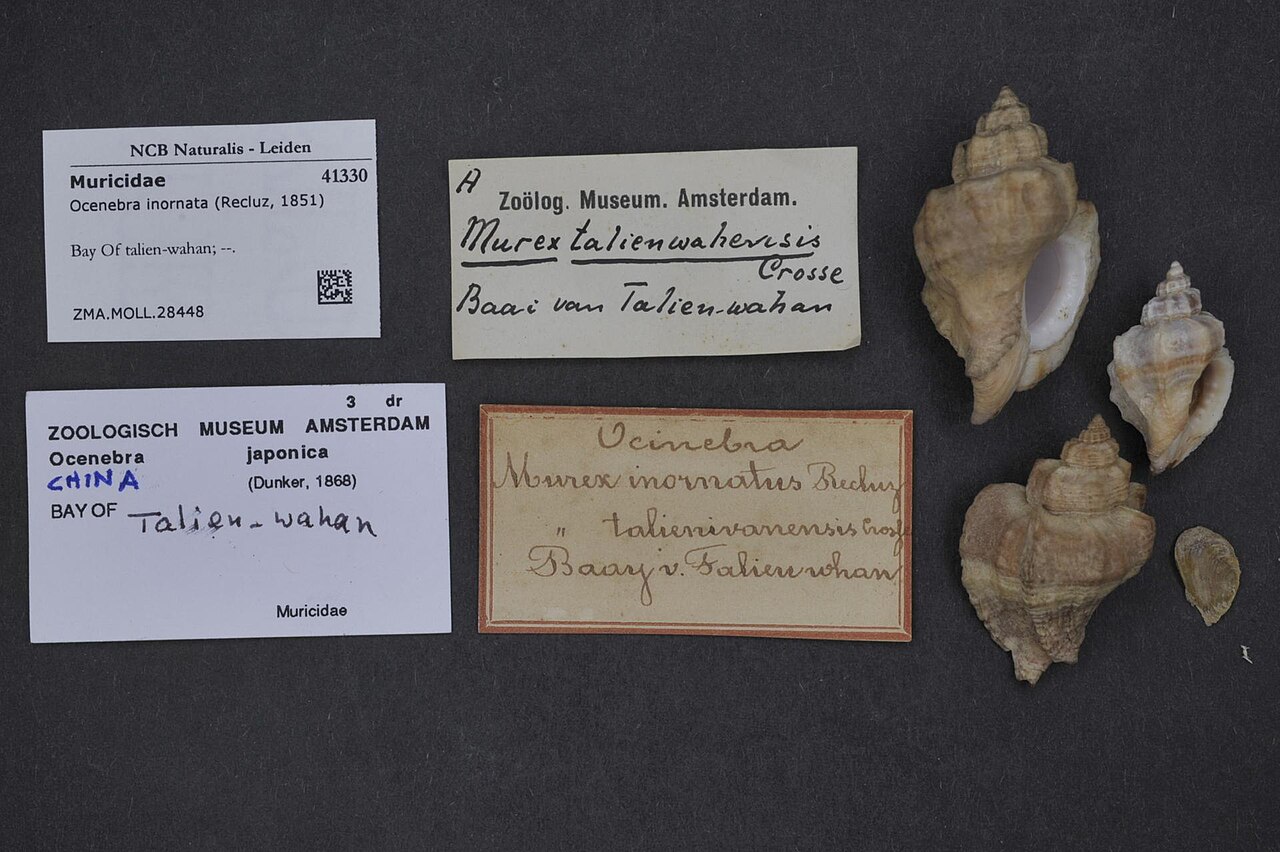 NCB Naturalis - Leiden
Muricidae 41330
Ocenebra inornata (Recluz, 1851)
Bay Of talien-wahan; --.
ZMA.MOLL.28448
A
Zoölog. Museum. Amsterdam.
Murex talienwahensis
Crosse
Baai van Talien-wahan
3 dr
ZOOLOGISCH MUSEUM AMSTERDAM
Ocenebra japonica
CHINA (Dunker, 1868)
BAY OF Talien-wahan
Muricidae
Ocinebra
Murex inornatus Recluz
" talienivanensis Crosse
Baay v. Talien whan